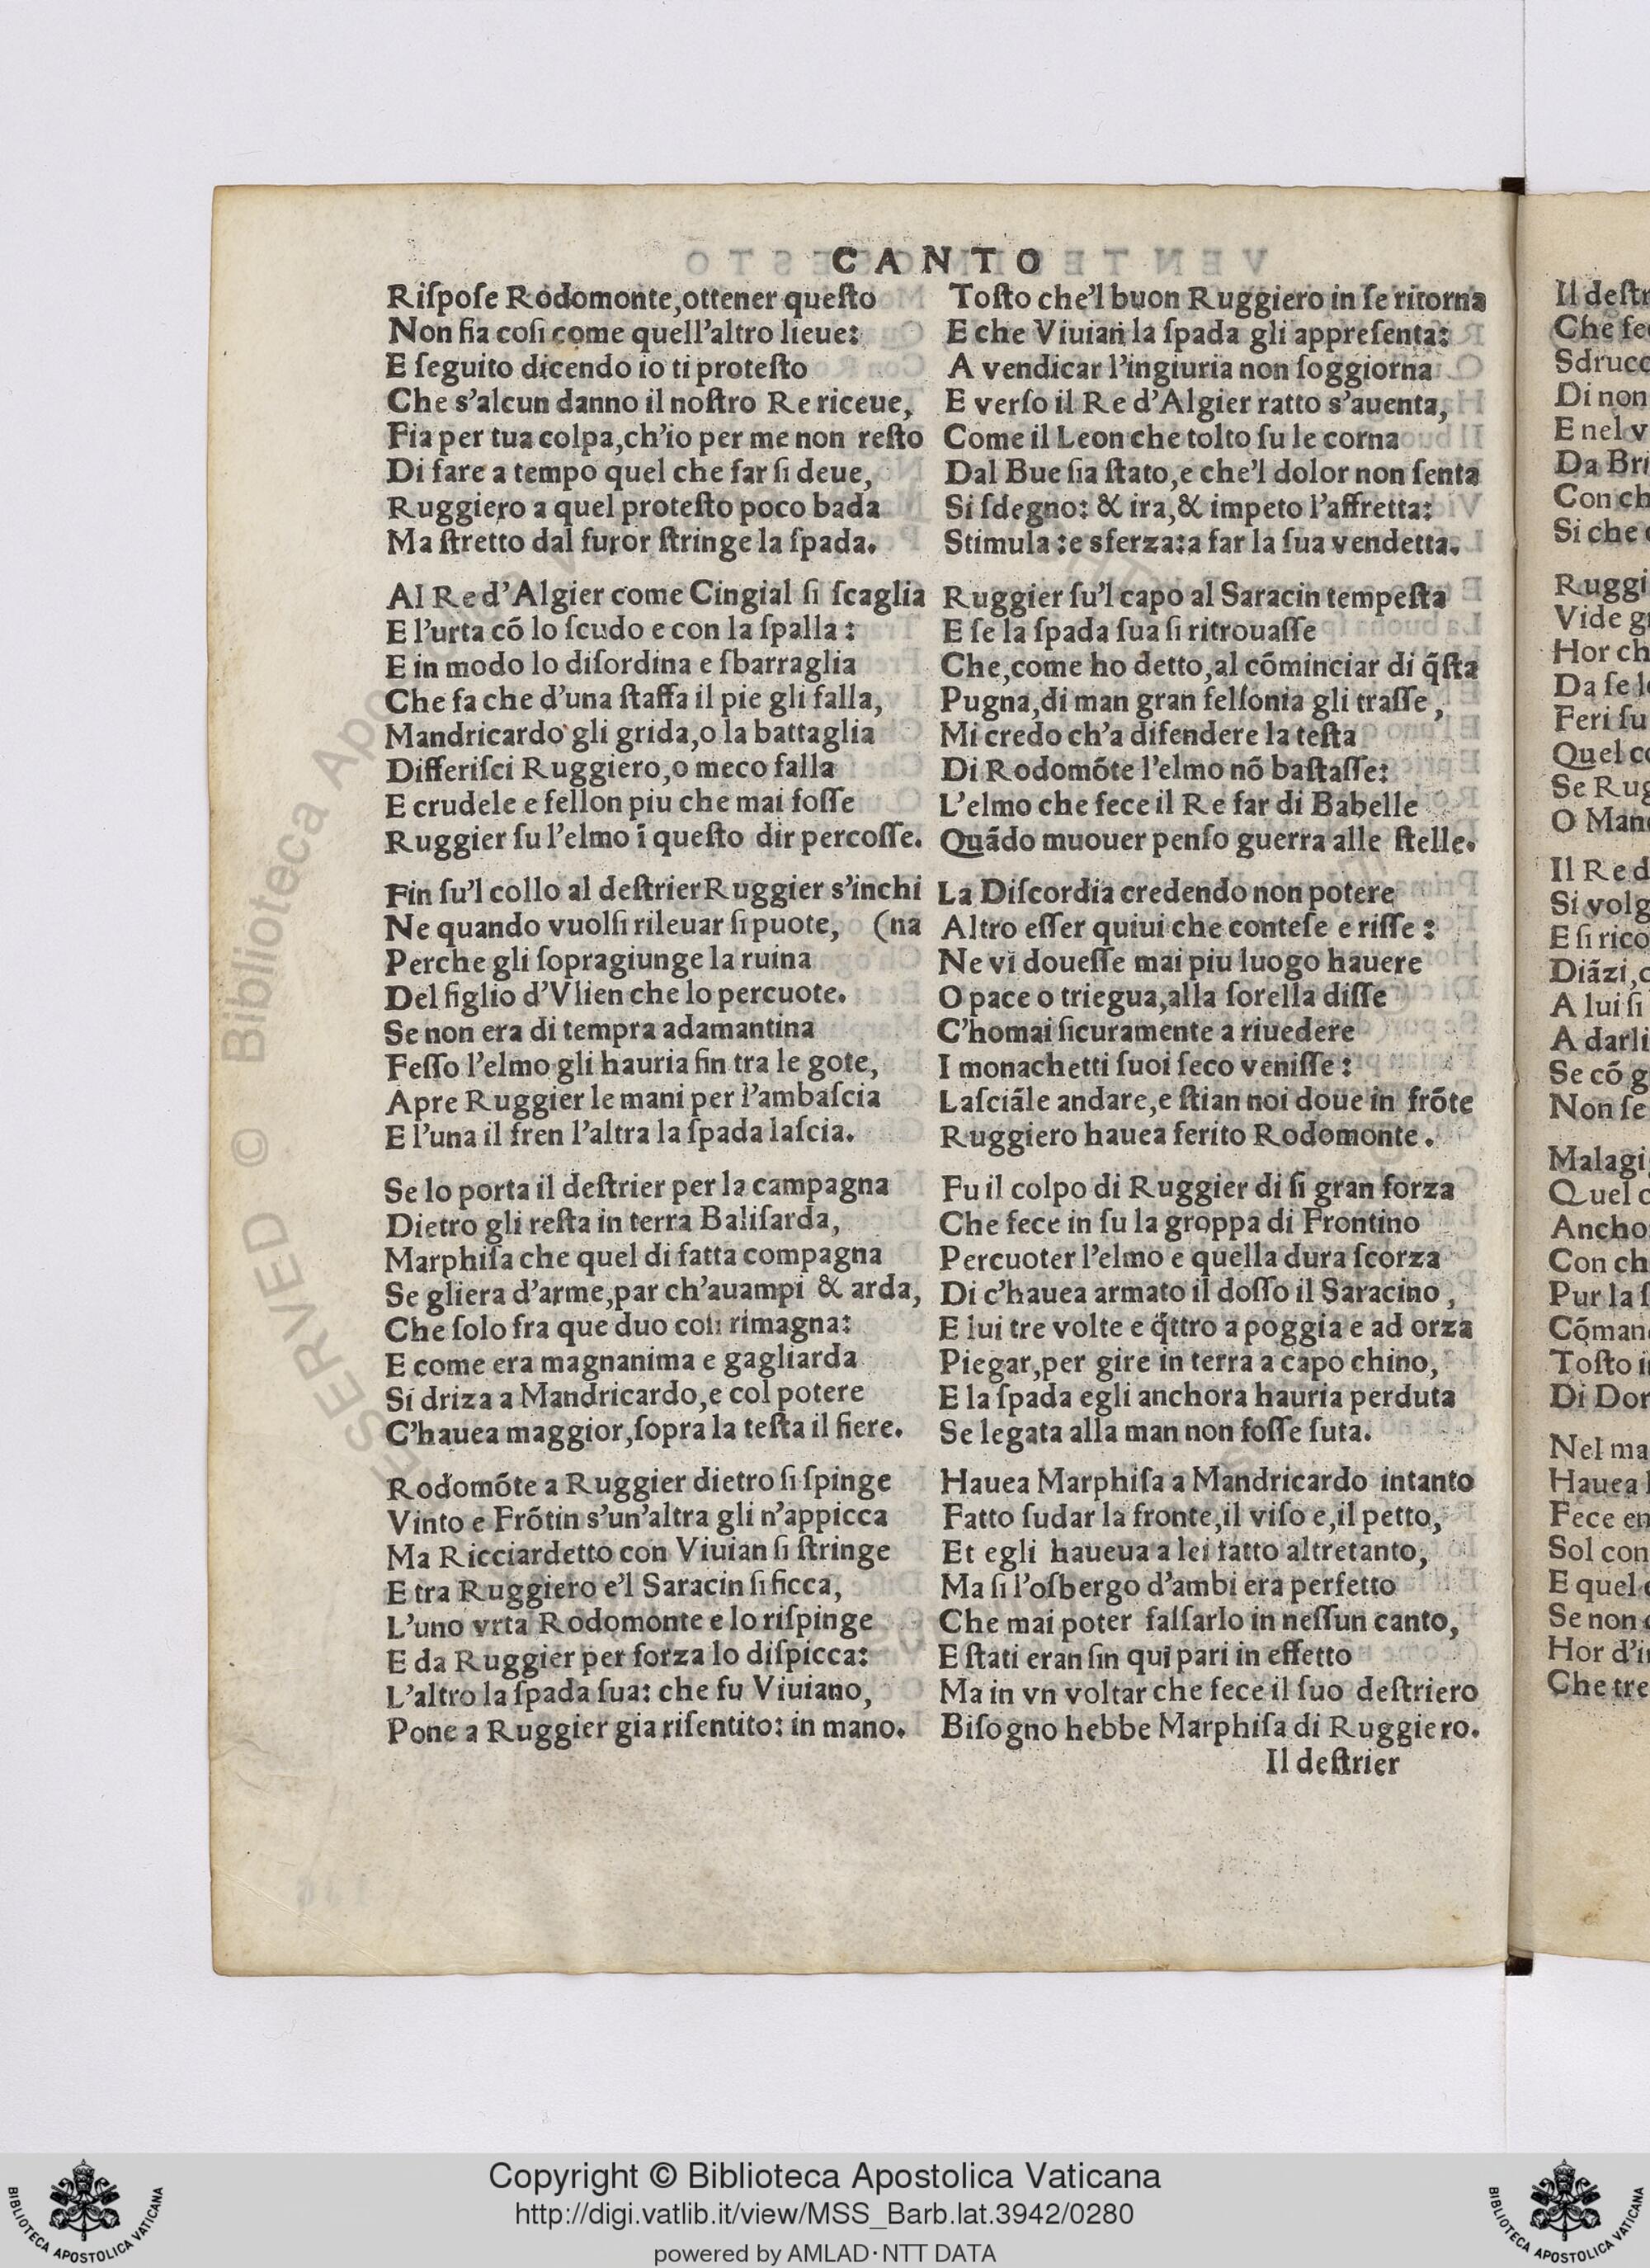 CANTO
Riſpoſe Rodomonte,ottener queſto
Non fia coſi come quell'altro lieue:
E ſeguito dicendo io ti proteſto
Che s'alcun danno il noſtro Re riceue,
Fia per tua colpa,ch'io per me non reſto
Di fare a tempo quel che far ſi deue,
Ruggiero a quel proteſto poco bada
Ma ſtretto dal furor ſtringe la ſpada.
Al Re d'Algier come Cingial ſi ſcaglia
E l'urta cõ lo ſcudo e con la ſpalla:
E in modo lo diſordina e ſbarraglia
Che fa che d'una ſtaffa il pie gli falla,
Mandricardo gli grida,o la battaglia
Differiſci Ruggiero,o meco falla
E crudele e fellon piu che mai foſſe
Ruggier ſu l'elmo ĩ queſto dir percoſſe.
Fin ſu'l collo al deſtrier Ruggier s'inchi
Ne quando vuolſi rileuar ſi puote, (na
Perche gli ſopragiunge la ruina
Del figlio d'Vlien che lo percuote.
Se non era di tempra adamantina
Feſſo l'elmo gli hauria fin tra le gote,
Apre Ruggier le mani per l'ambaſcia
E l'una il fren l'altra la ſpada laſcia.
Se lo porta il deſtrier per la campagna
Dietro gli reſta in terra Baliſarda,
Marphiſa che quel di fatta compagna
Se gliera d'arme,par ch'auampi & arda,
Che ſolo fra que duo coſi rimagna:
E come era magnanima e gagliarda
Si driza a Mandricardo,e col potere
C'hauea maggior,ſopra la teſta il fiere.
Rodomõte a Ruggier dietro ſi ſpinge
Vinto e Frõtin s'un'altra gli n'appicca
Ma Ricciardetto con Viuian ſi ſtringe
E tra Ruggiero e'l Saracin ſi ficca,
L'uno vrta Rodomonte e lo riſpinge
E da Ruggier per forza lo diſpicca:
L'altro la ſpada ſua: che fu Viuiano,
Pone a Ruggier gia riſentito: in mano.
Toſto che'l buon Ruggiero in ſe ritorna
E che Viuian la ſpada gli appreſenta:
A vendicar l'ingiuria non ſoggiorna
E verſo il Re d'Algier ratto s'auenta,
Come il Leon che tolto ſu le corna
Dal Bue ſia ſtato,e che'l dolor non ſenta
Si ſdegno: & ira,& impeto l'affretta:
Stimula:e sferza:a far la ſua vendetta.
Ruggier ſu'l capo al Saracin tempeſta
E ſe la ſpada ſua ſi ritrouaſſe
Che,come ho detto,al cõminciar di q̃ſta
Pugna,di man gran felſonia gli traſſe,
Mi credo ch'a difendere la teſta
Di Rodomõte l'elmo nõ baſtaſſe:
L'elmo che fece il Re far di Babelle
Quãdo muouer penſo guerra alle ſtelle.
La Diſcordia credendo non potere
Altro eſſer quiui che conteſe e riſſe:
Ne vi doueſſe mai piu luogo hauere
O pace o triegua,alla ſorella diſſe
C'homai ſicuramente a riuedere
I monachetti ſuoi ſeco veniſſe:
Laſciãle andare,e ſtian noi doue in frõte
Ruggiero hauea ferito Rodomonte.
Fu il colpo di Ruggier di ſi gran forza
Che fece in ſu la groppa di Frontino
Percuoter l'elmo e quella dura ſcorza
Di c'hauea armato il doſſo il Saracino,
E lui tre volte e q̃ttro a poggia e ad orza
Piegar,per gire in terra a capo chino,
E la ſpada egli anchora hauria perduta
Se legata alla man non foſſe ſuta.
Hauea Marphiſa a Mandricardo intanto
Fatto ſudar la fronte,il viſo e,il petto,
Et egli haueua a lei fatto altretanto,
Ma ſi l'oſbergo d'ambi era perfetto
Che mai poter falſarlo in neſſun canto,
E ſtati eran ſin qui pari in effetto
Ma in vn voltar che fece il ſuo deſtriero
Biſogno hebbe Marphiſa di Ruggiero.
Il deſtrier
Il deſtr
Che fe
Sdrucc
Di non
E nel v
Da Bri
Con ch
Si che
Ruggi
Vide g
Hor ch
Da ſe l
Feri ſu
Quel c
Se Rug
O Man
Il Re d
Si volg
E ſi rico
Diãzi,
A lui ſi
A darli
Se cõ g
Non ſe
Malagi
Quel
Ancho
Con ch
Pur la ſ
Cõman
Toſto i
Di Dor
Nel ma
Hauea
Fece en
Sol con
E quel
Se non
Hor d'i
Che tre
© Biblioteca Apo
Copyright © Biblioteca Apostolica Vaticana
http://digi.vatlib.it/view/MSS_Barb.lat.3942/0280
powered by AMLAD·NTT DATA
BIBLIOTECA APOSTOLICA VATICANA
BIBLIOTECA APOSTOLICA VATICANA